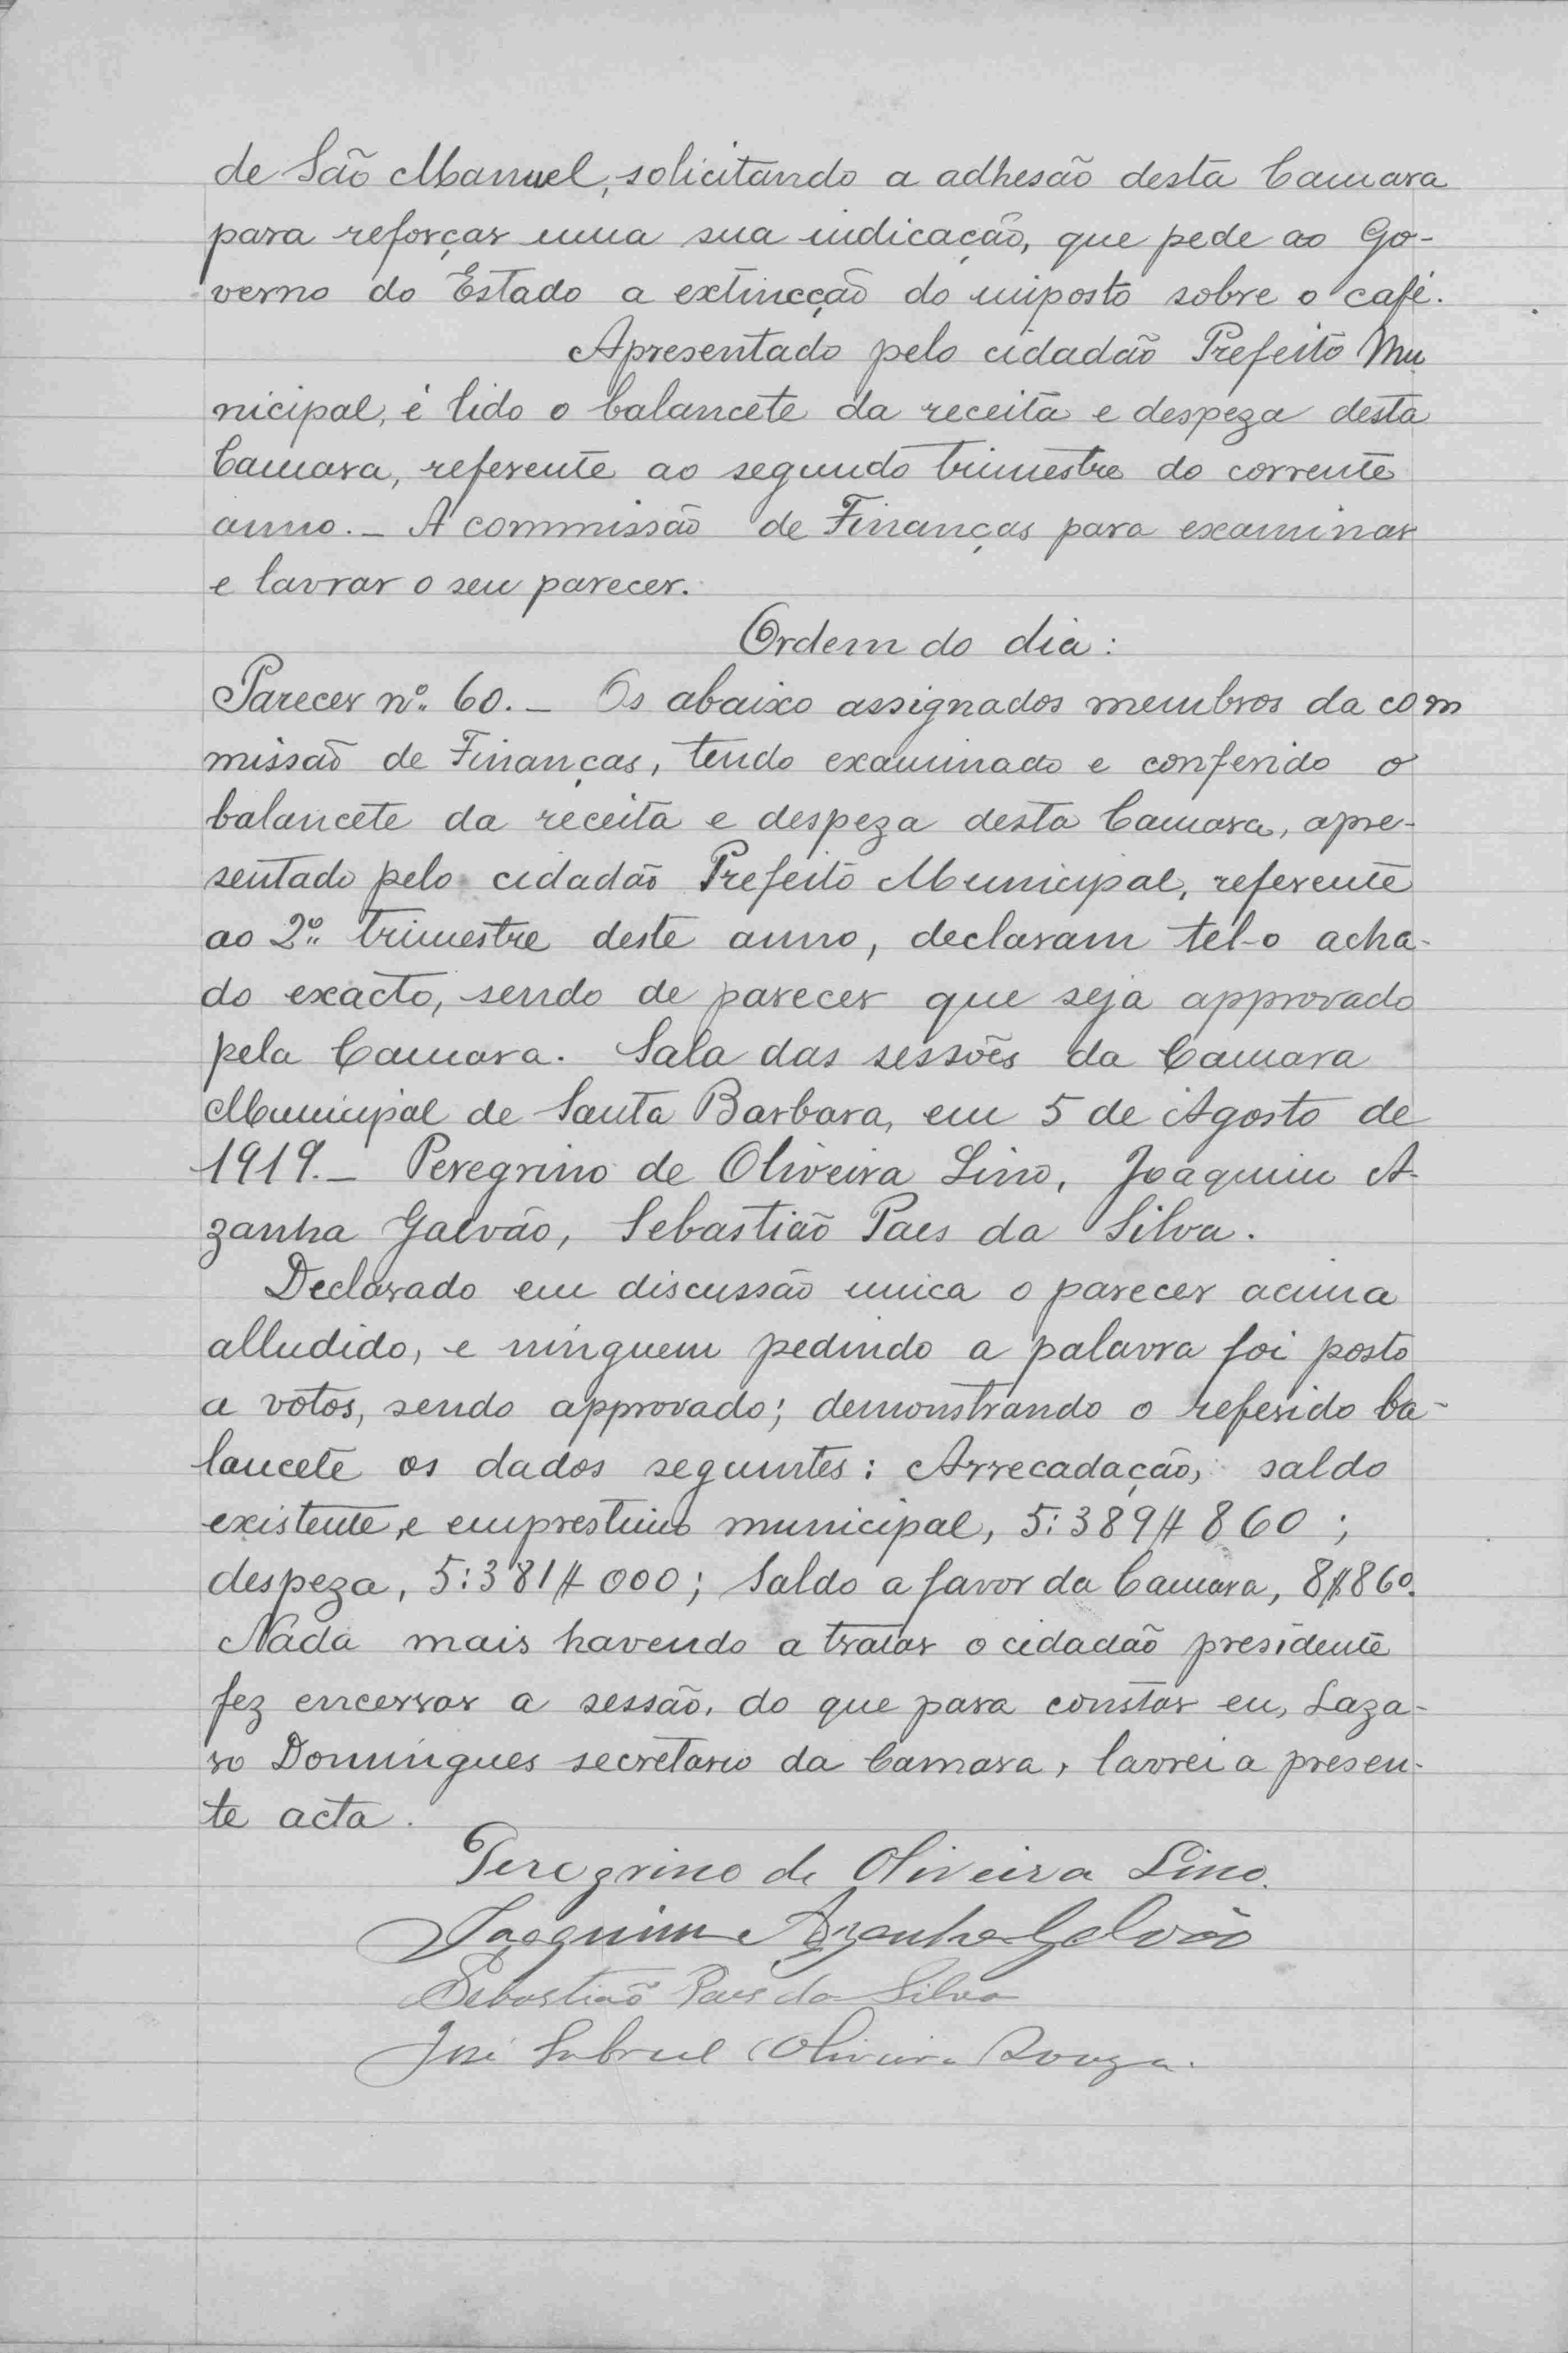 de São Manuel, solicitando a adhesão desta Camara
para reforçar uma sua indicação, que pede ao Go-
verno do Estado a extincção do imposto sobre o café.
Apresentado pelo cidadão Prefeito Mu
nicipal, é lido o balancete da receita e despeza desta
Camara, referente ao segundo trimestre do corrente
anno._ A commissão de Finanças para examinar
e lavrar o seu parecer.
Ordem do dia:
Parecer nº 60._ Os abaixo assignados membros da com
missão de Finanças, tendo examinado e conferido o
balancete da receita e despeza desta Camara, apre-
sentado pelo cidadão Prefeito Municipal, referente
ao 2º trimestre deste anno, declaram tel-o acha-
do exacto, sendo de parecer que seja approvado
pela Camara. Sala das sessões da Camara
Municipal de Santa Barbara, em 5 de Agosto de
1919._ Peregrino de Oliveira Lino, Joaquim A-
zanha Galvão, Sebastião Paes da Silva.
Declarado em discussão unica o parecer acima
alludido, e ninguem pedindo a palavra foi posto
a votos, sendo approvado; demonstrando o referido ba-
lancete os dados seguintes: Arrecadação, saldo
existente, e emprestimo municipal, 5:389$860;
despeza, 5:381$000; Saldo a favor da Camara, 8$860.
Nada mais havendo a tratar o cidadão presidente
fez encerrar a sessão, do que para constar eu, Laza-
ro Domingues secretario da Camara, lavrei a presen-
te acta.
Peregrino de Oliveira Lino.
Joaquim Azanha Galvão
Sebastião Paes da Silva
José Gabriel Oliveira Souza.